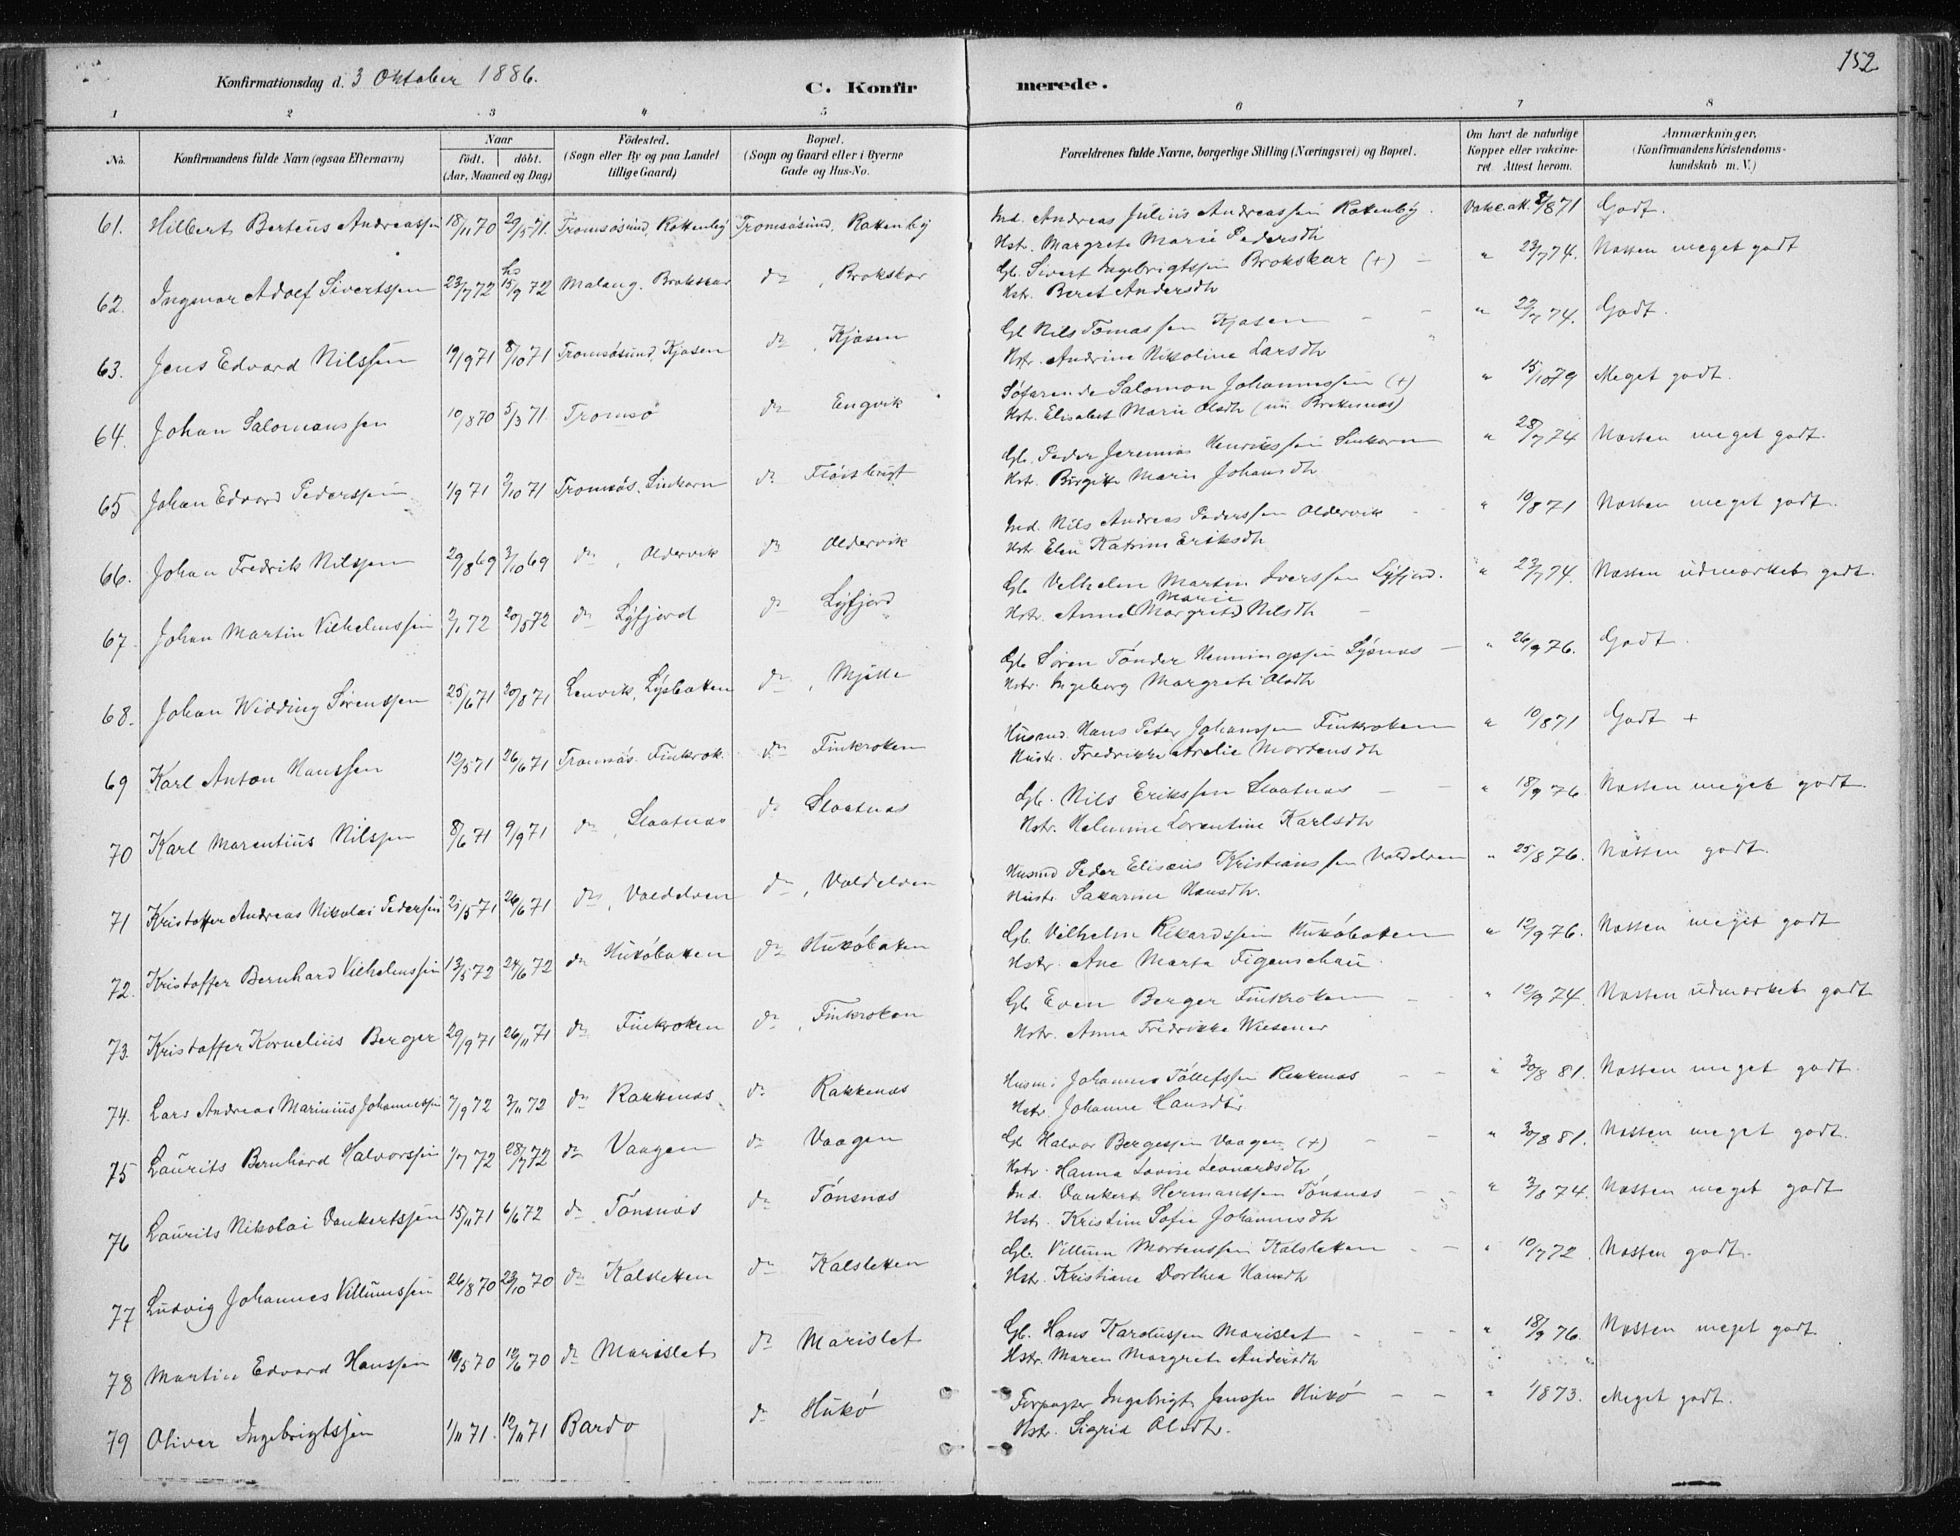 152
Konfirmationsdag d. 3 Oktober 1886.
C. Konfirmerede.
1 2 3 4 5 6 7 8
No.
Konfirmandens fulde Navn (ogsaa Efternavn)
Naar
födt. döbt.
(Aar, Maaned og Dag)
Födested.
(Sogn eller By og paa Landet
tillige Gaard)
Bopæl.
(Sogn og Gaard eller i Byerne
Gade og Hus-No.
Forældrenes fulde Navne, borgerlige Stilling (Næringsvei) og Bopæl.
Om havt de naturlige
Kopper eller vakcine-
ret. Attest herom.
Anmærkninger,
(Konfirmandens Kristendoms-
kundskab m. V.)
61. Hilbert Berteus Andreassen 18/11 70 29/5 71 Tromsösund, Rottenby Tromsösund, Rottenby Ind. Andreas Julius Andreassen Rottenby. Vakc. att. 8/8 71 Godt.
Hstr. Margrete Marie Pedersdtr
62. Ingmar Adolf Sivertssen 23/7 72 hd 15/9 72 Malang. Brokskar do , Brokskar Gb. Sivert Ingebrigtssen Brokskar (+) — " 23/7 74. Næsten meget godt
Hstr. Beret Andersdtr
63. Jens Edvard Nilssen 19/9 71 8/10 71 Tromsösund, Kjosen do , Kjosen Gb Nils Tomassen Kjosen — — " 22/7 74. Godt.
Hstr. Andrine Nikoline Larsdtr
64. Johan Salomonssen 10/8 70 5/3 71 Tromsö do Engvik Söfarende Salomon Johannessen (+) " 15/10 79 Meget godt.
Hstr. Elisabet Marie Olsdtr
65 Johan Edvard Pederssen 1/9 71 2/10 71 Tromsös, Sinkarn do Flöisbugt Gb. Peder Jeremias Henrikssen Sinkarn " 28/7 74 Næsten meget godt.
Hst. Birgitte Marie Johansdtr
66. Johan Fredrik Nilssen 29/8 69 3/10 69 do , Oldervik do Oldervik Ind. Nils Andreas Pederssen Oldervik " 10/8 71 Næsten meget godt.
Hstr Elen Katrine Eriksdtr
67. Johan Martin Vilhelmssen 2/1 72 20/5 72 do Lyfjord do Lyfjord Gb. Vilhelm Martin Iverssen Lyfjord. " 23/7 74. Næsten udmærket godt.
Hstr. Anne (Margrete) Marie Nilsdtr —
68. Johan Widding Sörenssen 25/6 71 20/8 71 Lenvik, Lysbotten do , Mjelle Gb Sören Tönder Henningssen Lysnæs — " 26/9 76. Godt.
Hstr. Ingeborg Margrete Olsdtr
69 Karl Anton Hanssen 12/5 71 26/6 71 Tromsös. Finkrok. do Finkroken Husmd. Hans Peter Johanssen Finkroken " 10/8 71 Godt +
Hustr. Fredrikke Arelie Mortensdtr
70 Karl Marentius Nilssen 8/6 71 9/9 71 do , Slaatnæs do Slaatnæs Gb. Nils Erikssen Slaatnæs — — " 18/9 76. Næsten meget godt.
Hstr. Helmine Lorentine Karlsdtr
71 Kristoffer Andreas Nikolai Pederssen 21/5 71 26/6 71 do , Voldelven do , Voldelven Husmd Peder Elisæus Kristianssen Voldelven " 25/8 76. Næsten godt.
Hustr. Sakarine Hansdtr.
72. Kristoffer Bernhard Vilhelmssen 13/5 72 24/6 72 do Huköbotten do Huköbotten Gb. Vilhelm Rikardssen Huköbotten " 12/9 76. Næsten meget godt
Hstr. Ane Marta Figenschau.
73. Kristoffer Kornelius Berger 29/9 71 26/11 71 do Finkroken do , Finkroken Gb Even Berger Finkroken — " 12/9 74. Næsten udmærket godt
Hstr. Anna Fredrikke Wiesener
74. Lars Andreas Marinius Johannessen 7/9 72 3/11 72 do Rakkenæs. do Rakkenæs Husm. Johannes Tollefssen Rakkenæs — — " 30/8 81. Næsten meget godt.
Hstr. Johanne Hansdtr.
75 Laurits Bernhard Halvorssen 1/7 72 28/7 72 do Vaagen do Vaagen Gb Halvor Bergessen Vaagen (+) — " 30/8 81. Næsten meget godt.
Hstr. Hanna Lovise Leonardsdtr
76 Laurits Nikolai Dankertssen 15/11 71 6/6 72 do Tönsnæs do Tönsnæs Ind. Dankert Hermanssen Tönsnæs — — " 3/8 74. Næsten meget godt
Hstr. Kristine Sofie Johannesdtr
77 Ludvig Johannes Villumssen 26/8 70 23/10 70 do Kalsletten do Kalsletten Gb. Villum Mortenssen Kalsletten — — " 10/7 72. Næsten godt.
Hstr. Kristiane Dorthea Hansdtr
78 Martin Edvard Hanssen 10/5 70 12/6 70 do Marislet do Marislet Gb. Hans Kardussen Marislet — — " 18/9 76. Næsten meget godt
Hstr. Maren Margrete Andersdtr
79 Oliver Ingebrigtssen 1/11 71. 12/11 71 Bardo do Hukö Forpagter Ingebrigt Jenssen Hukö — — " 1/8 73. Meget godt.
Hstr. Sigrid Olsdtr.